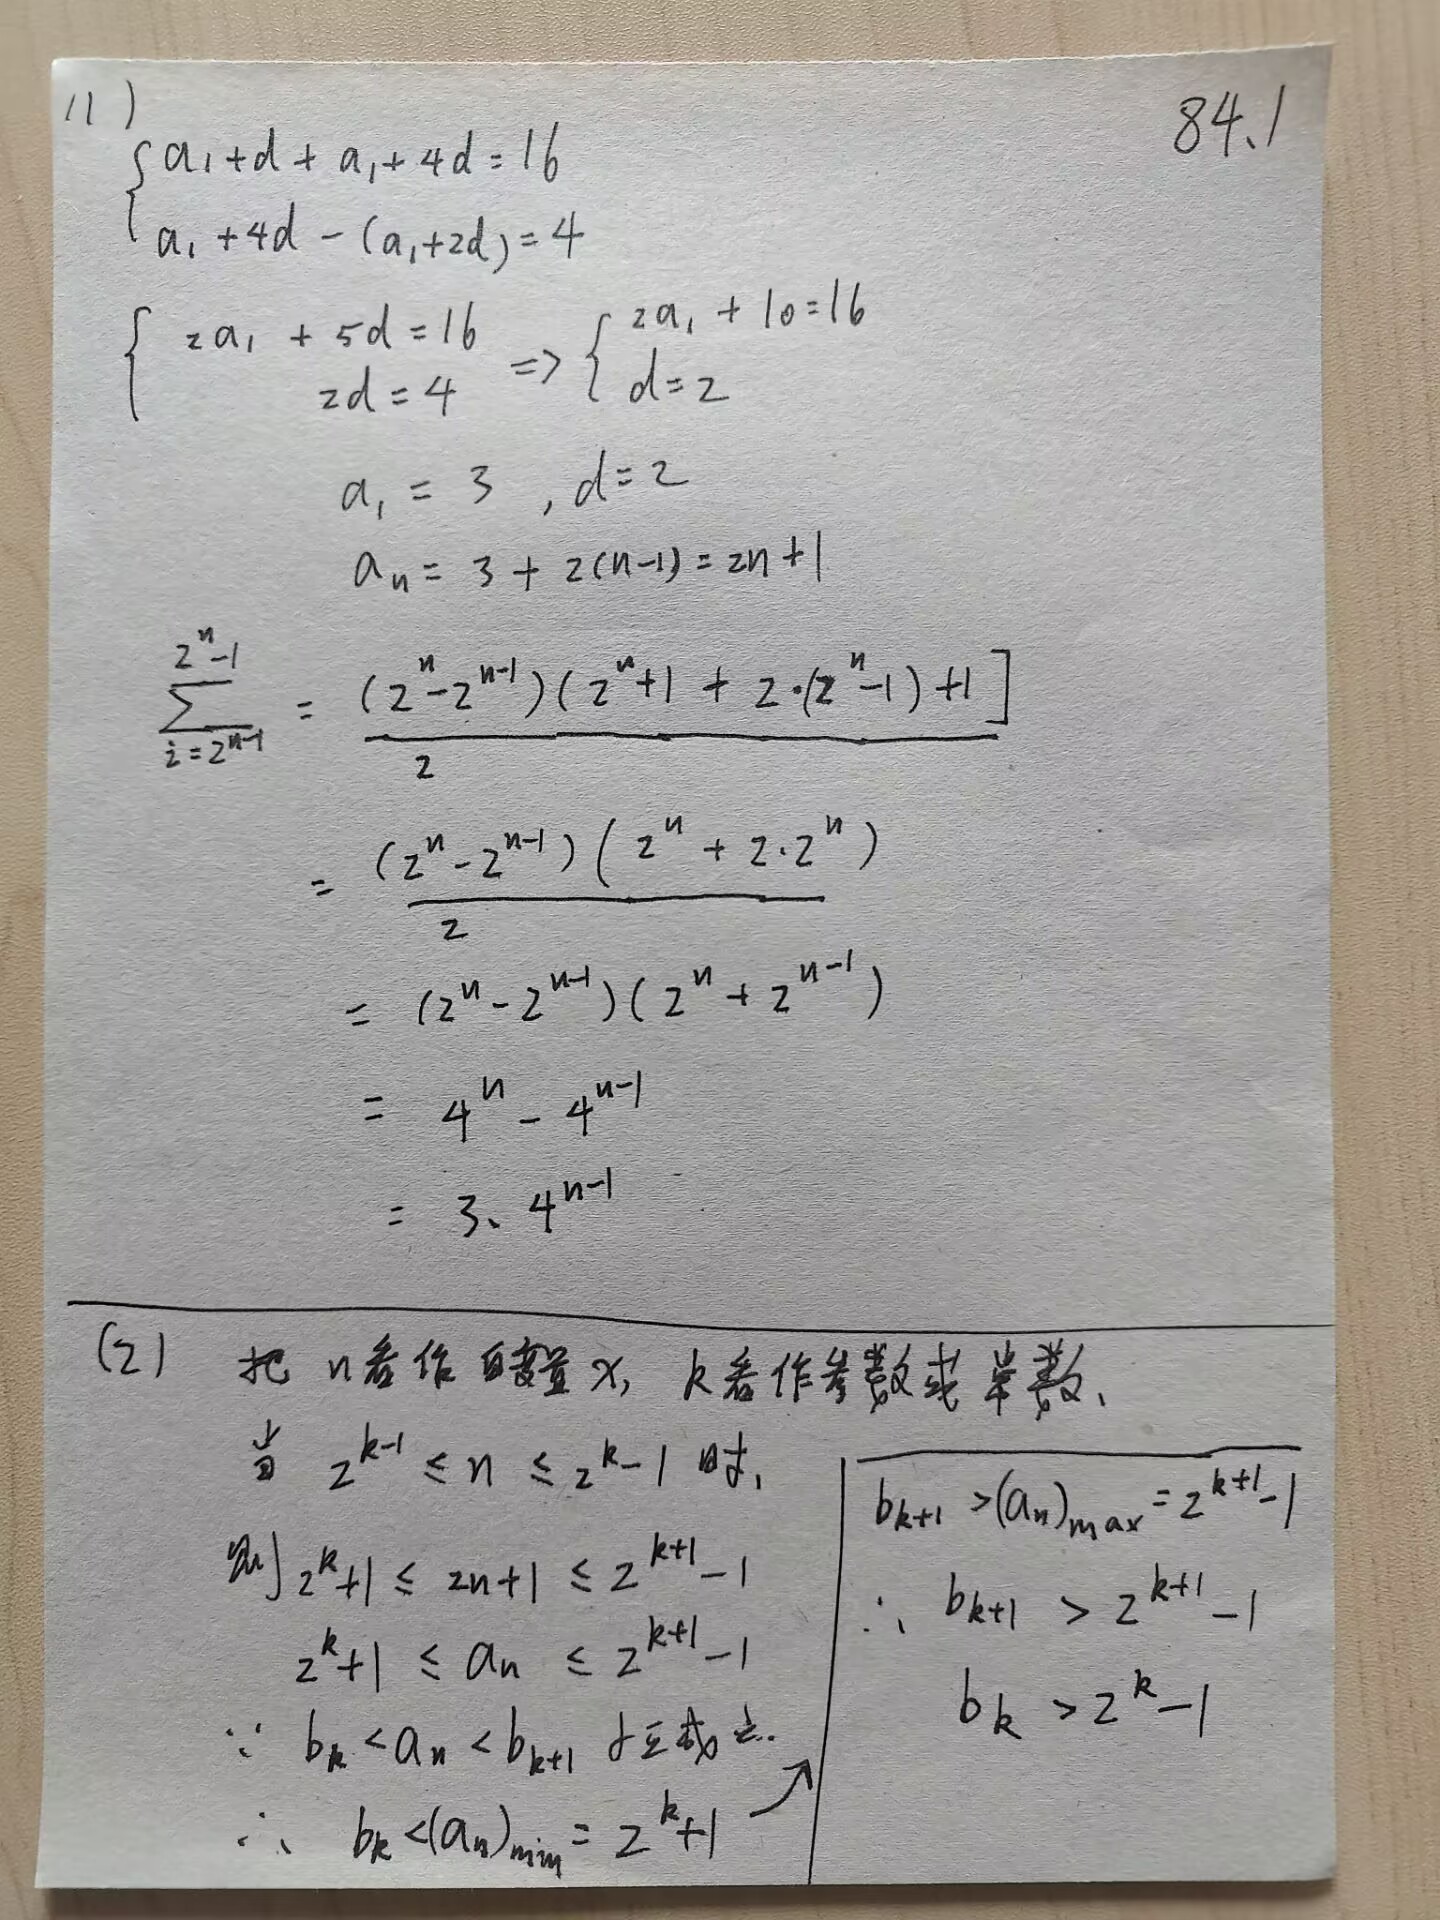 84.1
(1)
{ a₁+d + a₁+4d = 16
a₁+4d - (a₁+2d) = 4
{ 2a₁ + 5d = 16
2d = 4
=> { 2a₁ + 10 = 16
d = 2
a₁ = 3 , d = 2
aₙ = 3 + 2(n-1) = 2n+1
∑_{i=2^{n-1}}^{2^n-1} = (2^n - 2^{n-1})(2^n+1 + 2·(2^n-1)+1] / 2
= (2^n - 2^{n-1})(2^n + 2·2^n) / 2
= (2^n - 2^{n-1})(2^n + 2^{n-1})
= 4^n - 4^{n-1}
= 3、4^{n-1}
(2) 把n看作自变量x, k看作参数或常数、
当 2^{k-1} ≤ n ≤ 2^k-1 时,
则 2^k+1 ≤ 2n+1 ≤ 2^{k+1}-1
2^k+1 ≤ aₙ ≤ 2^{k+1}-1
∵ b_k < aₙ < b_{k+1} 恒成立.
∴ b_k < (aₙ)min = 2^k+1
b_{k+1} > (aₙ)max = 2^{k+1}-1
∴ b_{k+1} > 2^{k+1}-1
b_k > 2^k-1